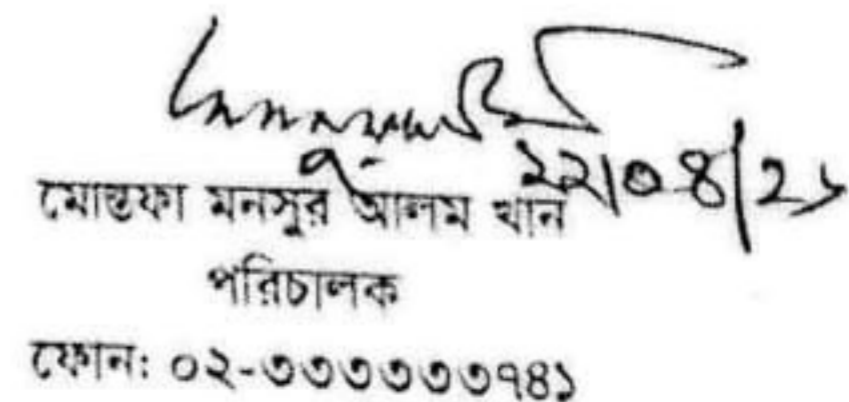 ২২/০৪/২১
মোস্তফা মনসুর আলম খান
পরিচালক
ফোন: ০২-৩৩৩৩৩৩৭৪১